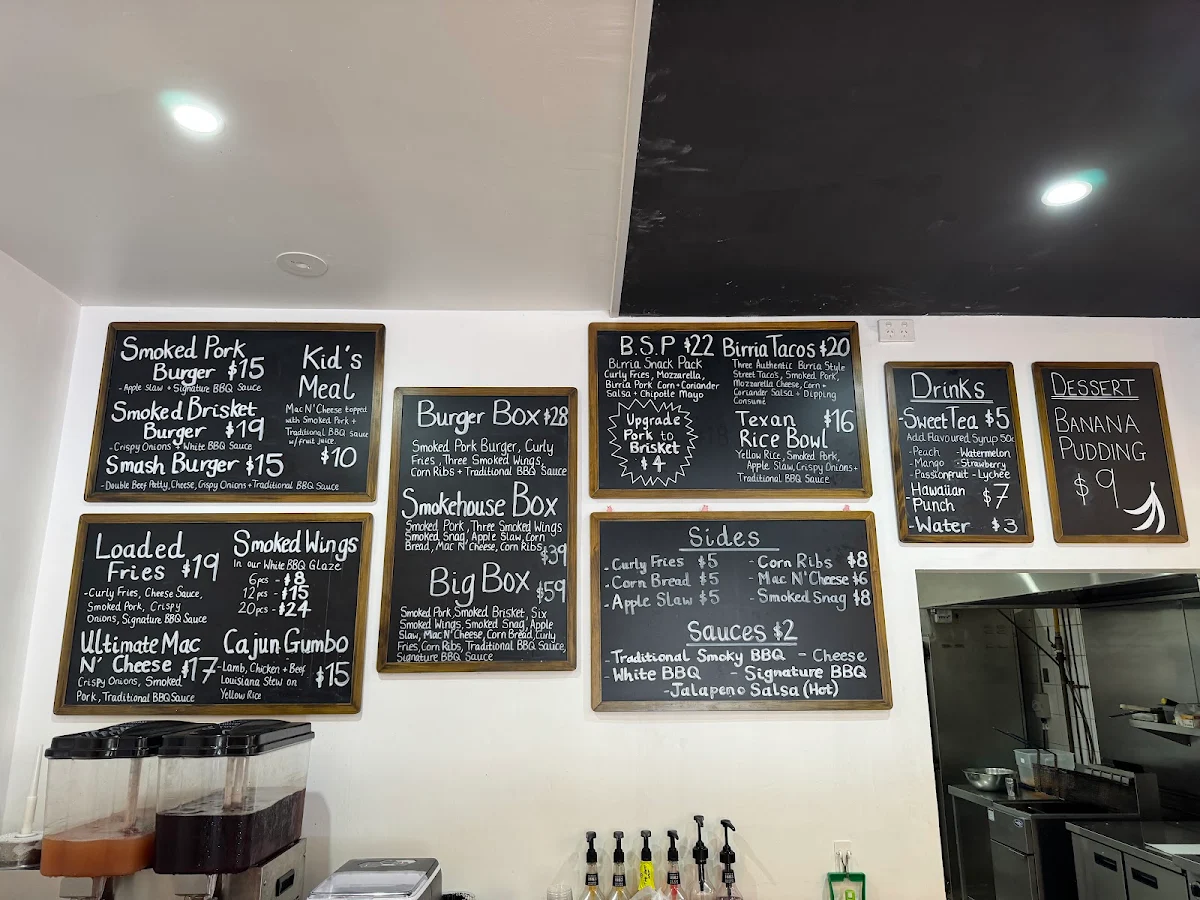 Smoked Pork
Burger $15
- Apple Slaw + Signature BBQ Sauce
Smoked Brisket
Burger $19
- Crispy Onions + White BBQ Sauce
Smash Burger $15
- Double Beef Patty, Cheese, Crispy Onions + Traditional BBQ Sauce
Kid's
Meal
Mac N' Cheese topped
with Smoked Pork +
Traditional BBQ Sauce
w/fruit juice.
$10
Loaded
Fries $19
- Curly Fries, Cheese Sauce,
Smoked Pork, Crispy
Onions, Signature BBQ Sauce
Smoked Wings
In our White BBQ Glaze
6pcs - $8
12pcs - $15
20pcs - $24
Ultimate Mac
N' Cheese $17
Crispy Onions, Smoked
Pork, Traditional BBQ Sauce
Cajun Gumbo
- Lamb, Chicken + Beef
Louisiana Stew on
Yellow Rice
$15
Burger Box $28
Smoked Pork Burger, Curly
Fries, Three Smoked Wings,
Corn Ribs + Traditional BBQ Sauce
Smokehouse Box
Smoked Pork, Three Smoked Wings
Smoked Snag, Apple Slaw, Corn
Bread, Mac N' Cheese, Corn Ribs
$39
Big Box $59
Smoked Pork, Smoked Brisket, Six
Smoked Wings, Smoked Snag, Apple
Slaw, Mac N' Cheese, Corn Bread, Curly
Fries, Corn Ribs, Traditional BBQ Sauce,
Signature BBQ Sauce
B.S.P $22
Birria Snack Pack
Curly Fries, Mozzarella,
Birria Pork Corn + Coriander
Salsa + Chipotle Mayo
Upgrade
Pork to
Brisket
$4
Birria Tacos $20
Three Authentic Birria Style
Street Taco's, Smoked Pork,
Mozzarella Cheese, Corn +
Coriander Salsa + Dipping
Consumé
Texan $16
Rice Bowl
Yellow Rice, Smoked Pork,
Apple Slaw, Crispy Onions +
Traditional BBQ Sauce
Sides
- Curly Fries $5
- Corn Bread $5
- Apple Slaw $5
- Corn Ribs $8
- Mac N' Cheese $6
- Smoked Snag $8
Sauces $2
- Traditional Smoky BBQ - Cheese
- White BBQ - Signature BBQ
- Jalapeno Salsa (Hot)
Drinks
- Sweet Tea $5
Add Flavoured Syrup 50c
- Peach - Watermelon
- Mango - Strawberry
- Passionfruit - Lychee
- Hawaiian
Punch $7
- Water $3
DESSERT
BANANA
PUDDING
$9